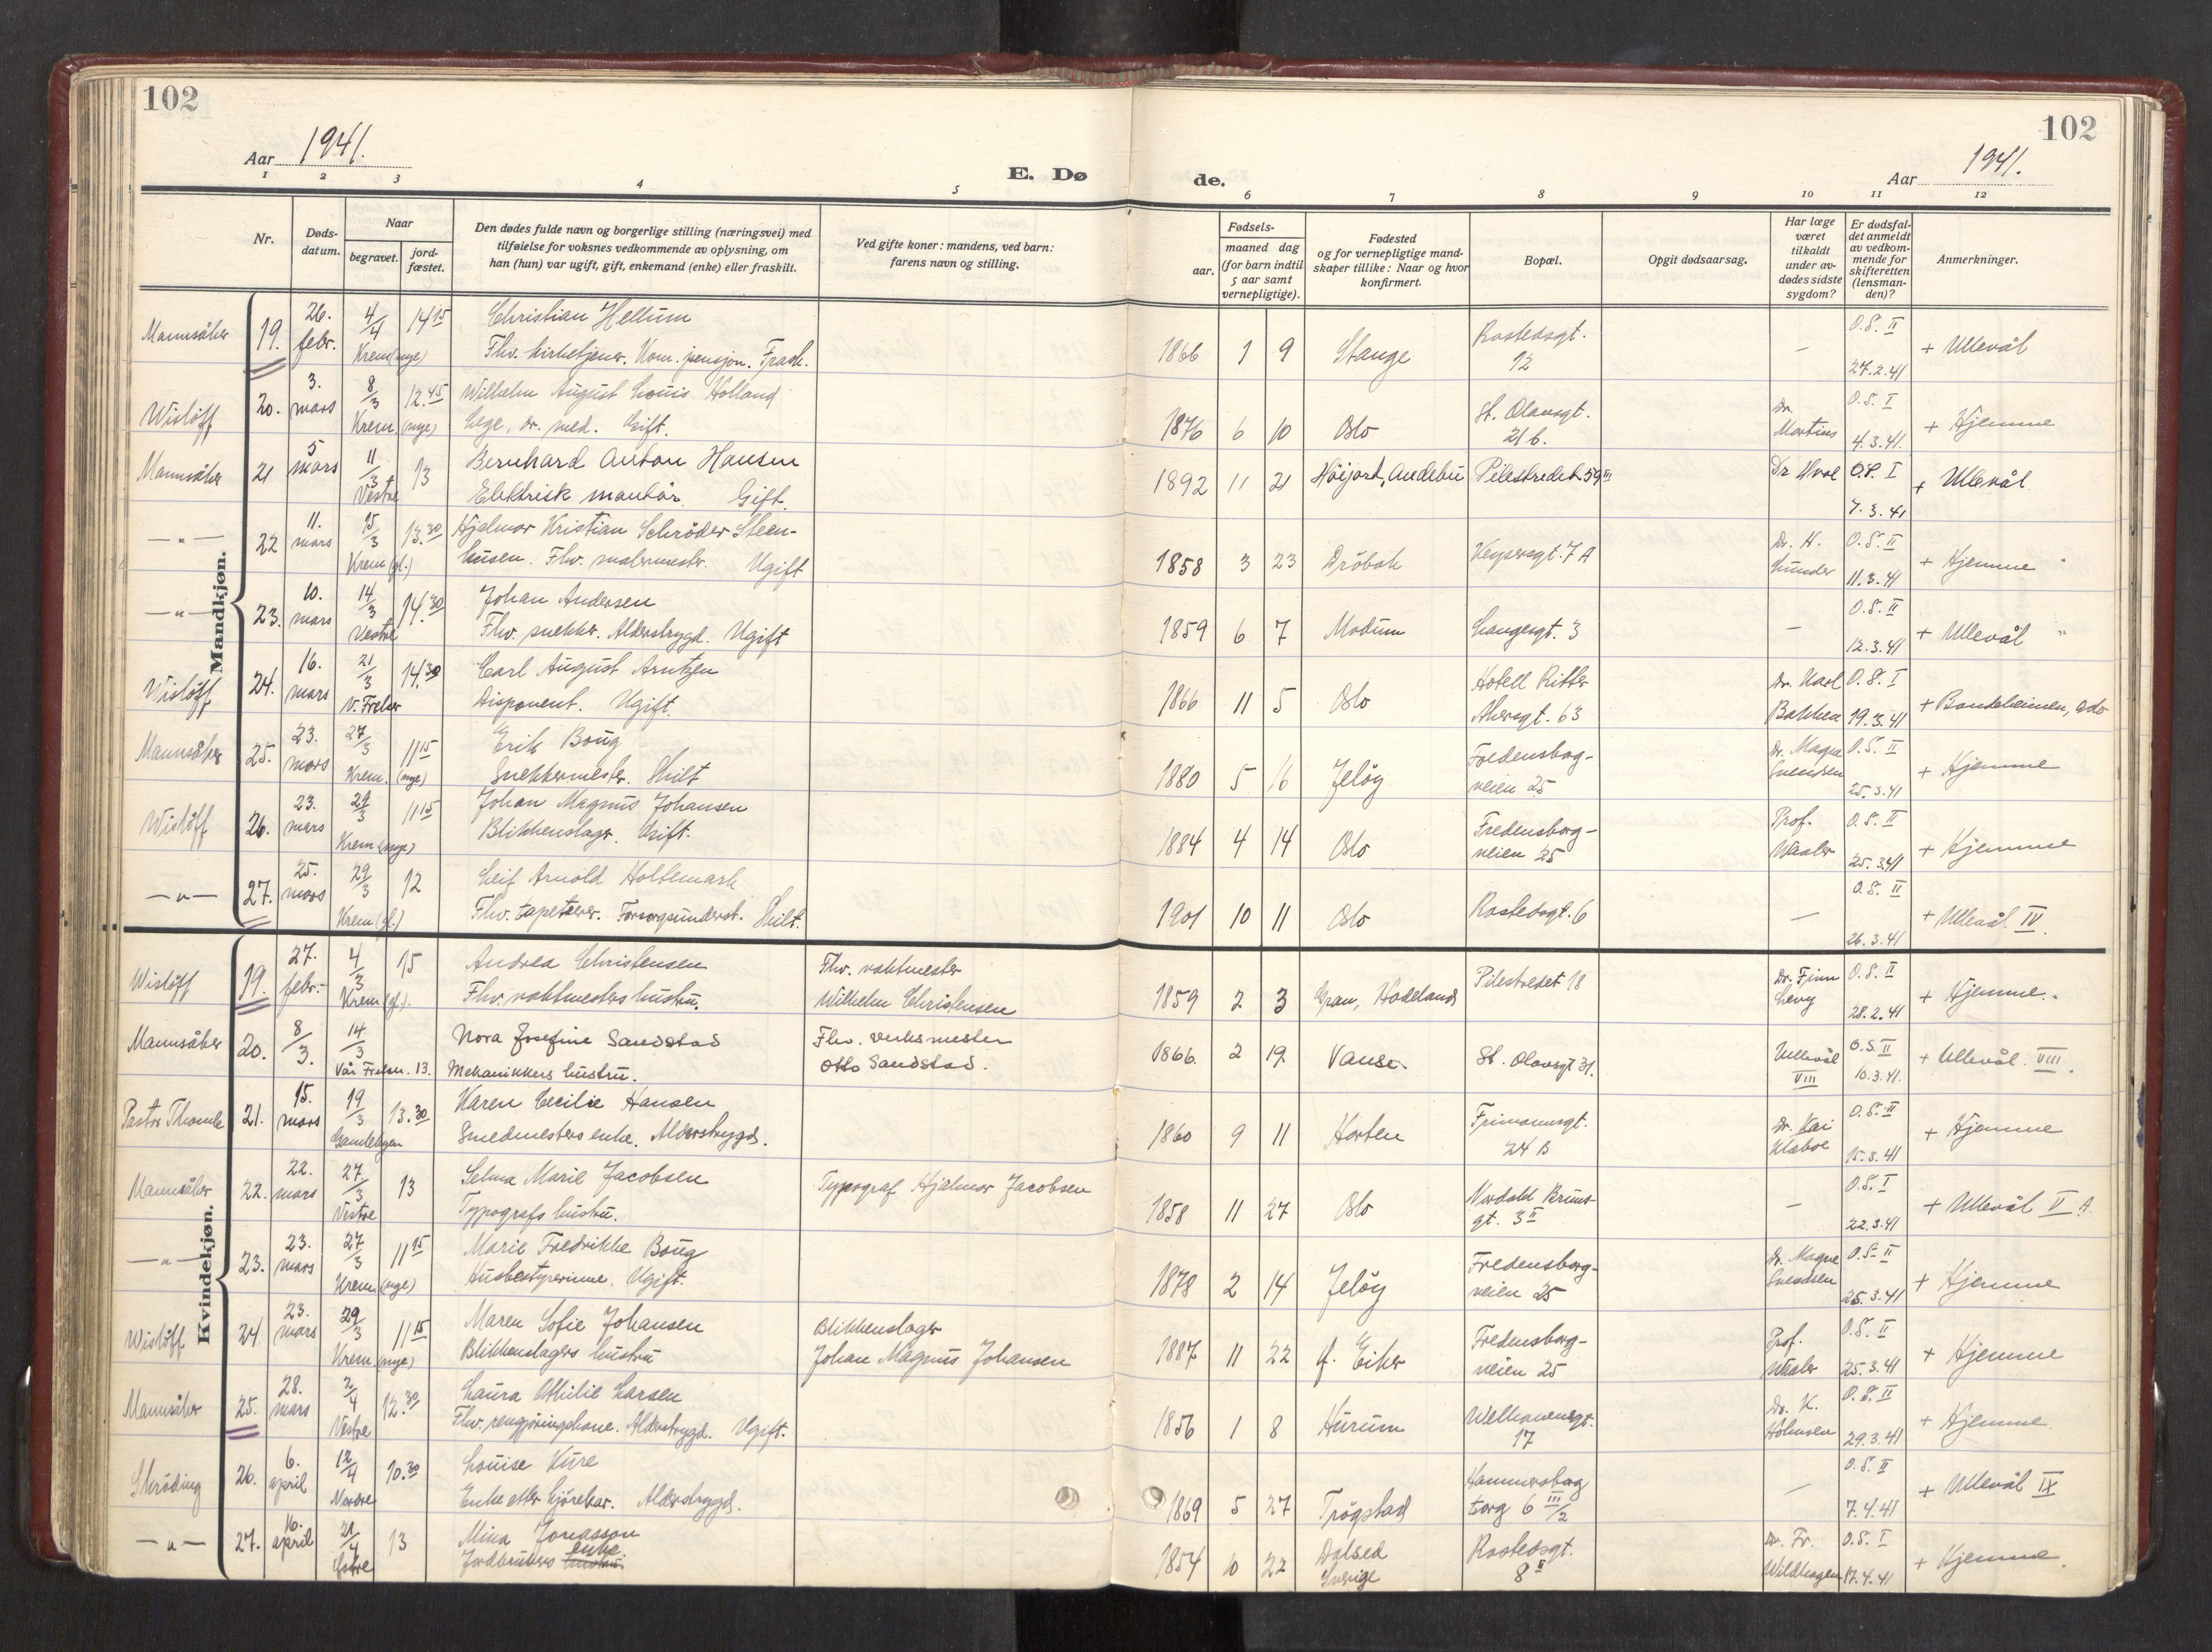 102
102
Aar 1941.
E. Dø
de.
Aar 1941.
1 2 3 4 5 6 7 8 9 10 11 12
Nr.
Døds-
datum.
Naar
begravet.
jord-
fæstet.
Den dødes fulde navn og borgerlige stilling (næringsvei) med
tilføielse for voksnes vedkommende av oplysning, om
han (hun) var ugift, gift, enkemand (enke) eller fraskilt.
Ved gifte koner: mandens, ved barn:
farens navn og stilling.
Fødsels-
aar.
maaned dag
(for barn indtil
5 aar samt
vernepligtige).
Fødested
og for vernepligtige mand-
skaper tillike: Naar og hvor
konfirmert.
Bopæl.
Opgit dødsaarsag.
Har læge
været
tilkaldt
under av-
dødes sidste
sygdom?
Er dødsfal-
det anmeldt
av vedkom-
mende for
skifteretten
(lensman-
den)?
Anmerkninger.
Mandkjøn.
Mannsåker 19. 26. febr. 4/4 14 15 Krem (nye)
Christian Hellum
Fhv. kirketjener. Kom. pensjon. Frask.
1866 1 9 Stange Rostedsgt. 12 — O.S. II 27.2.41 + Ullevål
Wisløff 20. 3. mars 8/3 12.45 Krem. (nye)
Wilhelm August Louis Holland
Lege, dr. med. Gift.
1876 6 10 Oslo St. Olavsgt. 21 b. Dr. Martins O.S. I 4.3.41. + Hjemme
Mannsåker 21 5 mars 11/3 13 Vestre
Bernhard Anton Hansen
Elektrisk montør. Gift.
1892 11 21 Høijord, Andebu Pilestredet 59 III Dr Hval O.S. I 7.3.41 + Ullevål.
—"— 22 11. mars 15/3 13.30 Krem (gl.)
Hjalmar Kristian Schrøder Steen-
husen. Fhv. malermester. Ugift
1858 3 23 Drøbak Keysersgt. 7 A Dr. H. Lunder O.S. II 11.3.41 + Hjemme
—"— 23. 10. mars 14/3 14.30 Vestre
Johan Andersen
Fhv. snekker. Alderstrygd. Ugift
1859 6 7 Modum Langesgt. 3 — O.S. II 12.3.41 + Ullevål
Wisløff 24. 16. mars 21/3 14.30 V. Frelser
Carl August Arntzen
Disponent. Ugift.
1866 11 5 Oslo Hotell Ritter Akersgt. 63 Dr. Karl Bakken O.S. I 19.3.41 + Bondeheimen, Oslo
Mannsåker 25. 23. mars 27/3 11 15 Krem. (nye)
Erik Boug
Snekkermester. Skilt
1880 5 16 Jeløy Fredensborg-
veien 25 Dr. Magne Svendsen O.S. II 25.3.41 + Hjemme
Wisløff 26. 23. mars 29/3 11 15 Krem (nye)
Johan Magnus Johansen
Blikkenslager. Gift.
1884 4 14 Oslo Fredensborg-
veien 25 Prof. Waaler O.S. II 25.3.41 + Hjemme
—"— 27. 25. mars 29/3 12 Krem (gl.)
Leif Arnold Holtemark
Fhv. tapetserer. Forsorgsunderst. Skilt.
1901 10 11 Oslo Rostedsgt. 6 — O.S. II 26.3.41 + Ullevål IV.
Kvindekjøn.
Wisløff 19. 27. febr. 4/3 15 Krem (gl).
Andrea Christensen
Fhv. vaktmesters hustru.
Fhv. vaktmester
Wilhelm Christensen
1859 2 3 Gran, Hadeland Pilestredet 18 Dr. Finn Levy O.S. II 28.2.41 + Hjemme.
Mannsåker 20. 8/3. 14/3 Vår Frelser. 13.
Nora Josefine Sandstad
Mekanikkers hustru.
Fhv. verksmester
Otto Sandstad.
1866 2 19. Vanse. St. Olavsgt 31. Ullevål VIII O.S. II 10.3.41. + Ullevål. VIII.
Pastor Thomle 21. 15. mars 19/3 13.30 Gamlebyen
Karen Cecilie Hansen
Smedmesters enke. Alderstrygd.
1860 9 11 Horten Frimannsgt. 24 B Dr. Kai Klaboe O.S. II 15.3.41 + Hjemme
Mannsåker 22. 22. mars 27/3 13 Vestre
Selma Marie Jacobsen
Typografs hustru.
Typograf Hjalmar Jacobsen
1858 11 27 Oslo Nordahl Bruns-
gt. 3 II — O.S. I 22.3.41 + Ullevål II A.
—"— 23. 23. mars 27/3 11 15 Krem (nye)
Marie Fredrikke Boug
Husbestyrerinne. Ugift.
1878 2 14 Jeløy Fredensborg-
veien 25 Dr. Magne Svendsen O.S. II 25.3.41 + Hjemme
Wisløff 24. 23. mars 29/3 11 15 Krem. (nye)
Maren Sofie Johansen
Blikkenslagers hustru
Blikkenslager
Johan Magnus Johansen
1887 11 22 Ø. Eiker Fredensborg-
veien 25 Prof. Waaler O.S. II 25.3.41 + Hjemme
Mannsåker 25. 28. mars 2/4 12.30 Vestre
Laura Othilie Larsen
Fhv. rengjøringskone. Alderstrygd. Ugift.
1856 1 8 Hurum Welhavensgt. 17 Dr. K. Holmsen O.S. II 29.3.41 + Hjemme
Skrøding 26. 6. april 12/4 10.30 Nordre
Louise Kure
Enke etter kjørekar. Alderstrygd.
1869 5 27 Trøgstad Hammersborg
torg 6 III/2 — O.S. II 7.4.41 + Ullevål IX
—"— 27. 16. april 21/4 13 Østre
Mina Jonasson
Jordbrukers hustru enke.
1854 10 22 Dalsed Sverige Rostedsgt. 8 II Dr. Fr. Wildhagen O.S. I 17.4.41 + Hjemme.